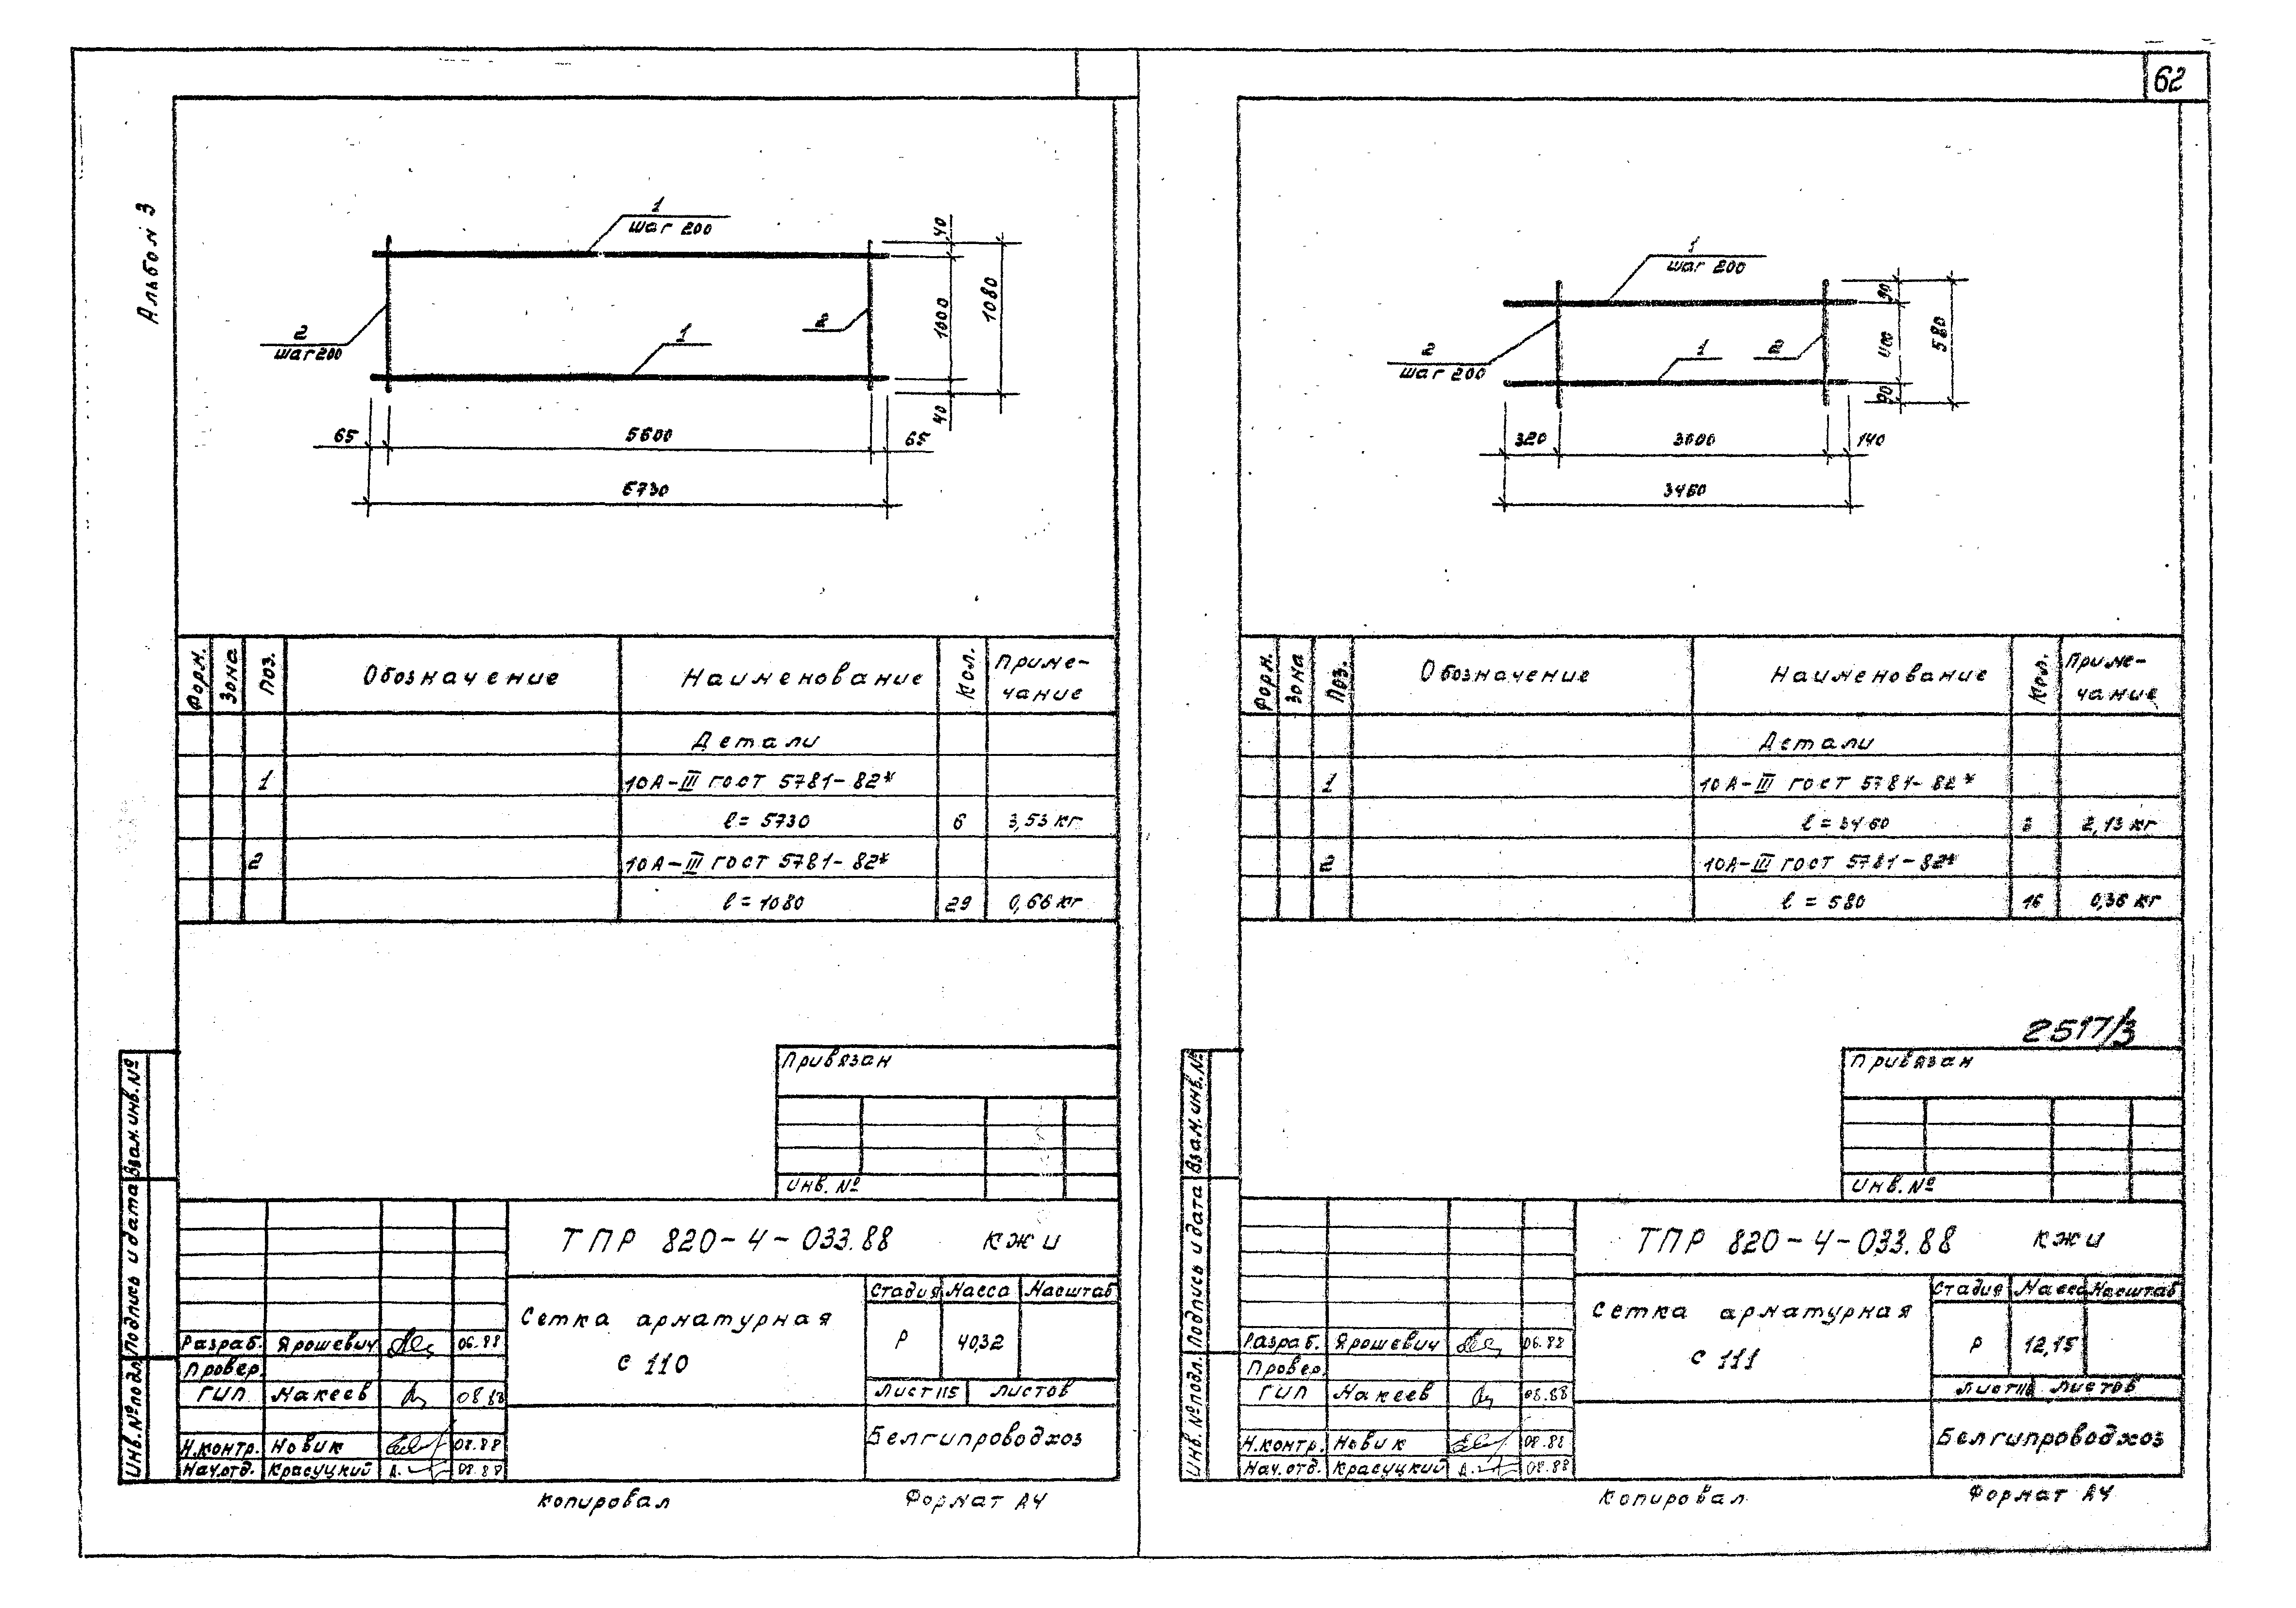 62
Альбом 3
1
шаг 200
2
шаг 200
1
2
40
1000
40
1080
65
5600
65
5730
Форм.
Зона
Поз.
Обозначение
Наименование
Кол.
Приме-
чание
Детали
1
10А-III ГОСТ 5781-82*
ℓ= 5730
6
3,53 кг
2
10А-III ГОСТ 5781-82*
ℓ= 1080
29
0,66 кг
Привязан
Инв. №
ТПР 820-4-033.88
КЖИ
Сетка арматурная
С 110
Стадия
Масса
Масштаб
Р
40,32
Лист 115
Листов
Белгипроводхоз
Разраб.
Ярошевич
06.88
Провер.
ГИП
Макеев
08.88
Н.контр.
Новик
08.88
Нач.отд.
Красуцкий
08.88
Взам.инв.№
Подпись и дата
Инв.№подл.
Копировал
Формат А4
1
шаг 200
2
шаг 200
1
2
90
400
90
580
320
3000
140
3460
Форм.
Зона
Поз.
Обозначение
Наименование
Кол.
Приме-
чание
Детали
1
10А-III ГОСТ 5781-82*
ℓ = 3460
3
2,13 кг
2
10А-III ГОСТ 5781-82*
ℓ = 580
16
0,36 кг
2517/3
Привязан
Инв. №
ТПР 820-4-033.88
КЖИ
Сетка арматурная
С 111
Стадия
Масса
Масштаб
Р
12,15
Лист 116
Листов
Белгипроводхоз
Разраб.
Ярошевич
06.88
Провер.
ГИП
Макеев
08.88
Н.контр.
Новик
08.88
Нач.отд.
Красуцкий
08.88
Взам.инв.№
Подпись и дата
Инв.№подл.
Копировал
Формат А4